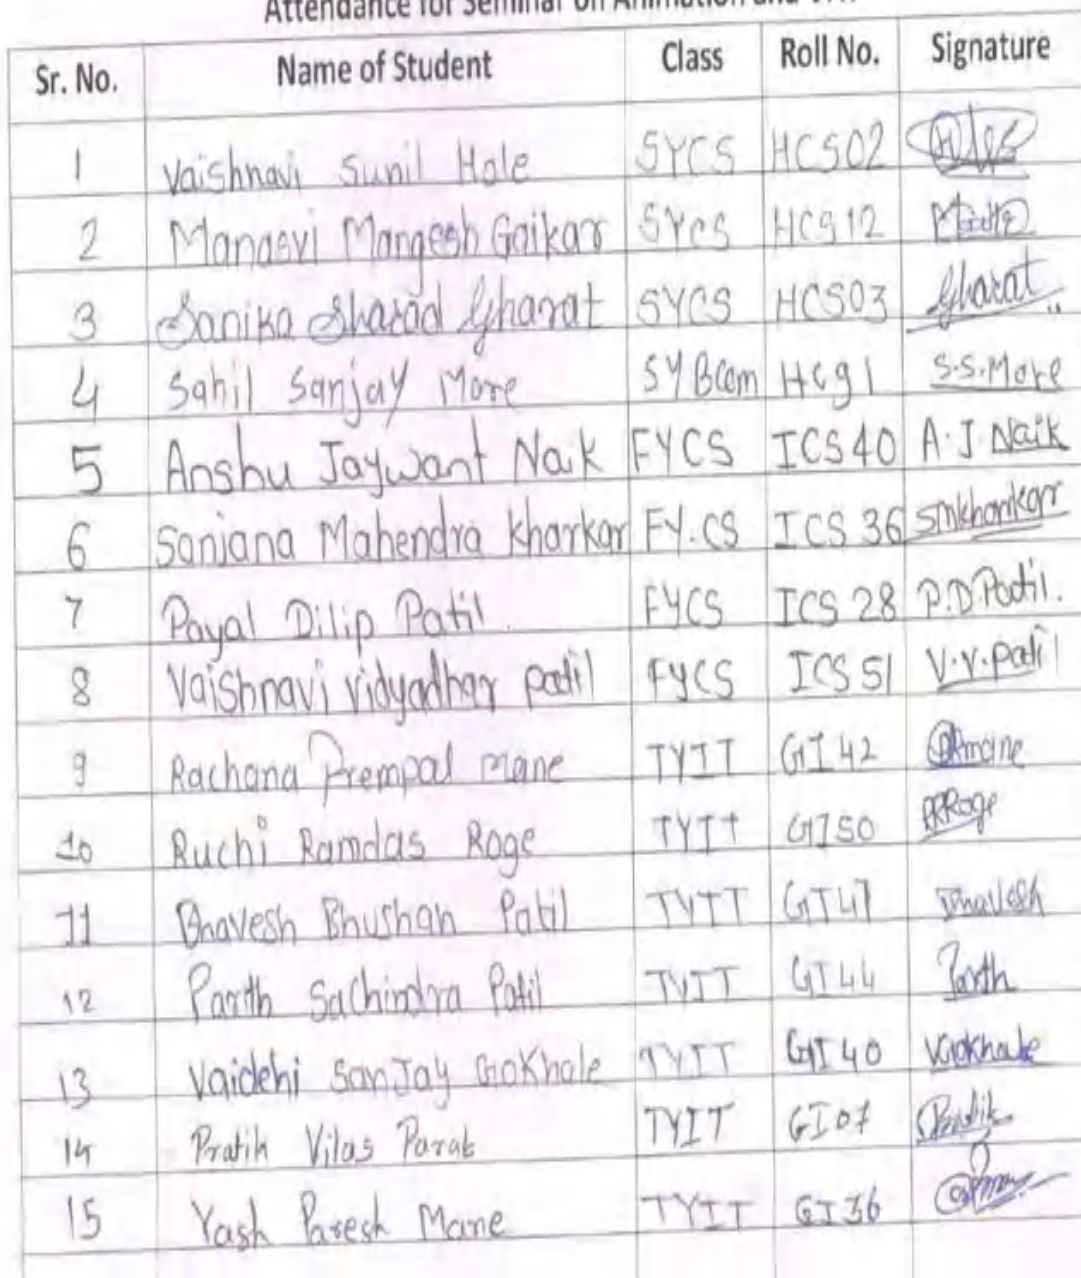 Attendance for Seminar on Animation and
Sr. No. Name of Student Class Roll No. Signature
1 Vaishnavi Sunil Hole SYCS HCS02
2 Manasvi Mangesh Gaikar SYCS HCS12
3 Sanika Sharad Gharat SYCS HCS03 Gharat
4 Sahil Sanjay More SY Bcom Hcg1 S.S.More
5 Anshu Jaywant Naik FYCS ICS40 A.J.Naik
6 Sanjana Mahendra Kharkar FY.CS ICS 36 smkharkar
7 Payal Dilip Patil FYCS ICS 28 P.D.Patil.
8 Vaishnavi Vidyadhar patil FYCS ICS 51 V.V.patil
9 Rachana Prempal Mane TYIT GI42
10 Ruchi Ramdas Roge TYIT GI50 RRRoge
11 Bhavesh Bhushan Patil TYIT Bhavesh
12 Parth Sachindra Patil TYIT GI44 Parth
13 Vaidehi Sanjay Gokhale TYIT GI40 VGokhale
14 Pratik Vilas Parab TYIT GI07 Pratik
15 Yash Paresh Mane TYIT GI36